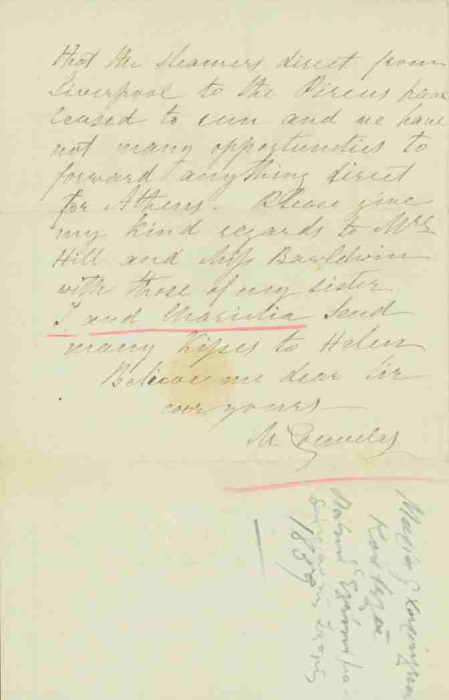 that the steamers direct from
Liverpool to the Pireus have
ceased to run and we have
not many opportunities to
forward anything direct
for Athens. Please give
my kind regards to Mrs
Hill and Miss
with those of my sister.
I and Chariclia send
many kisses to Helen
Believe me dear Sir
ever yours
M
1859